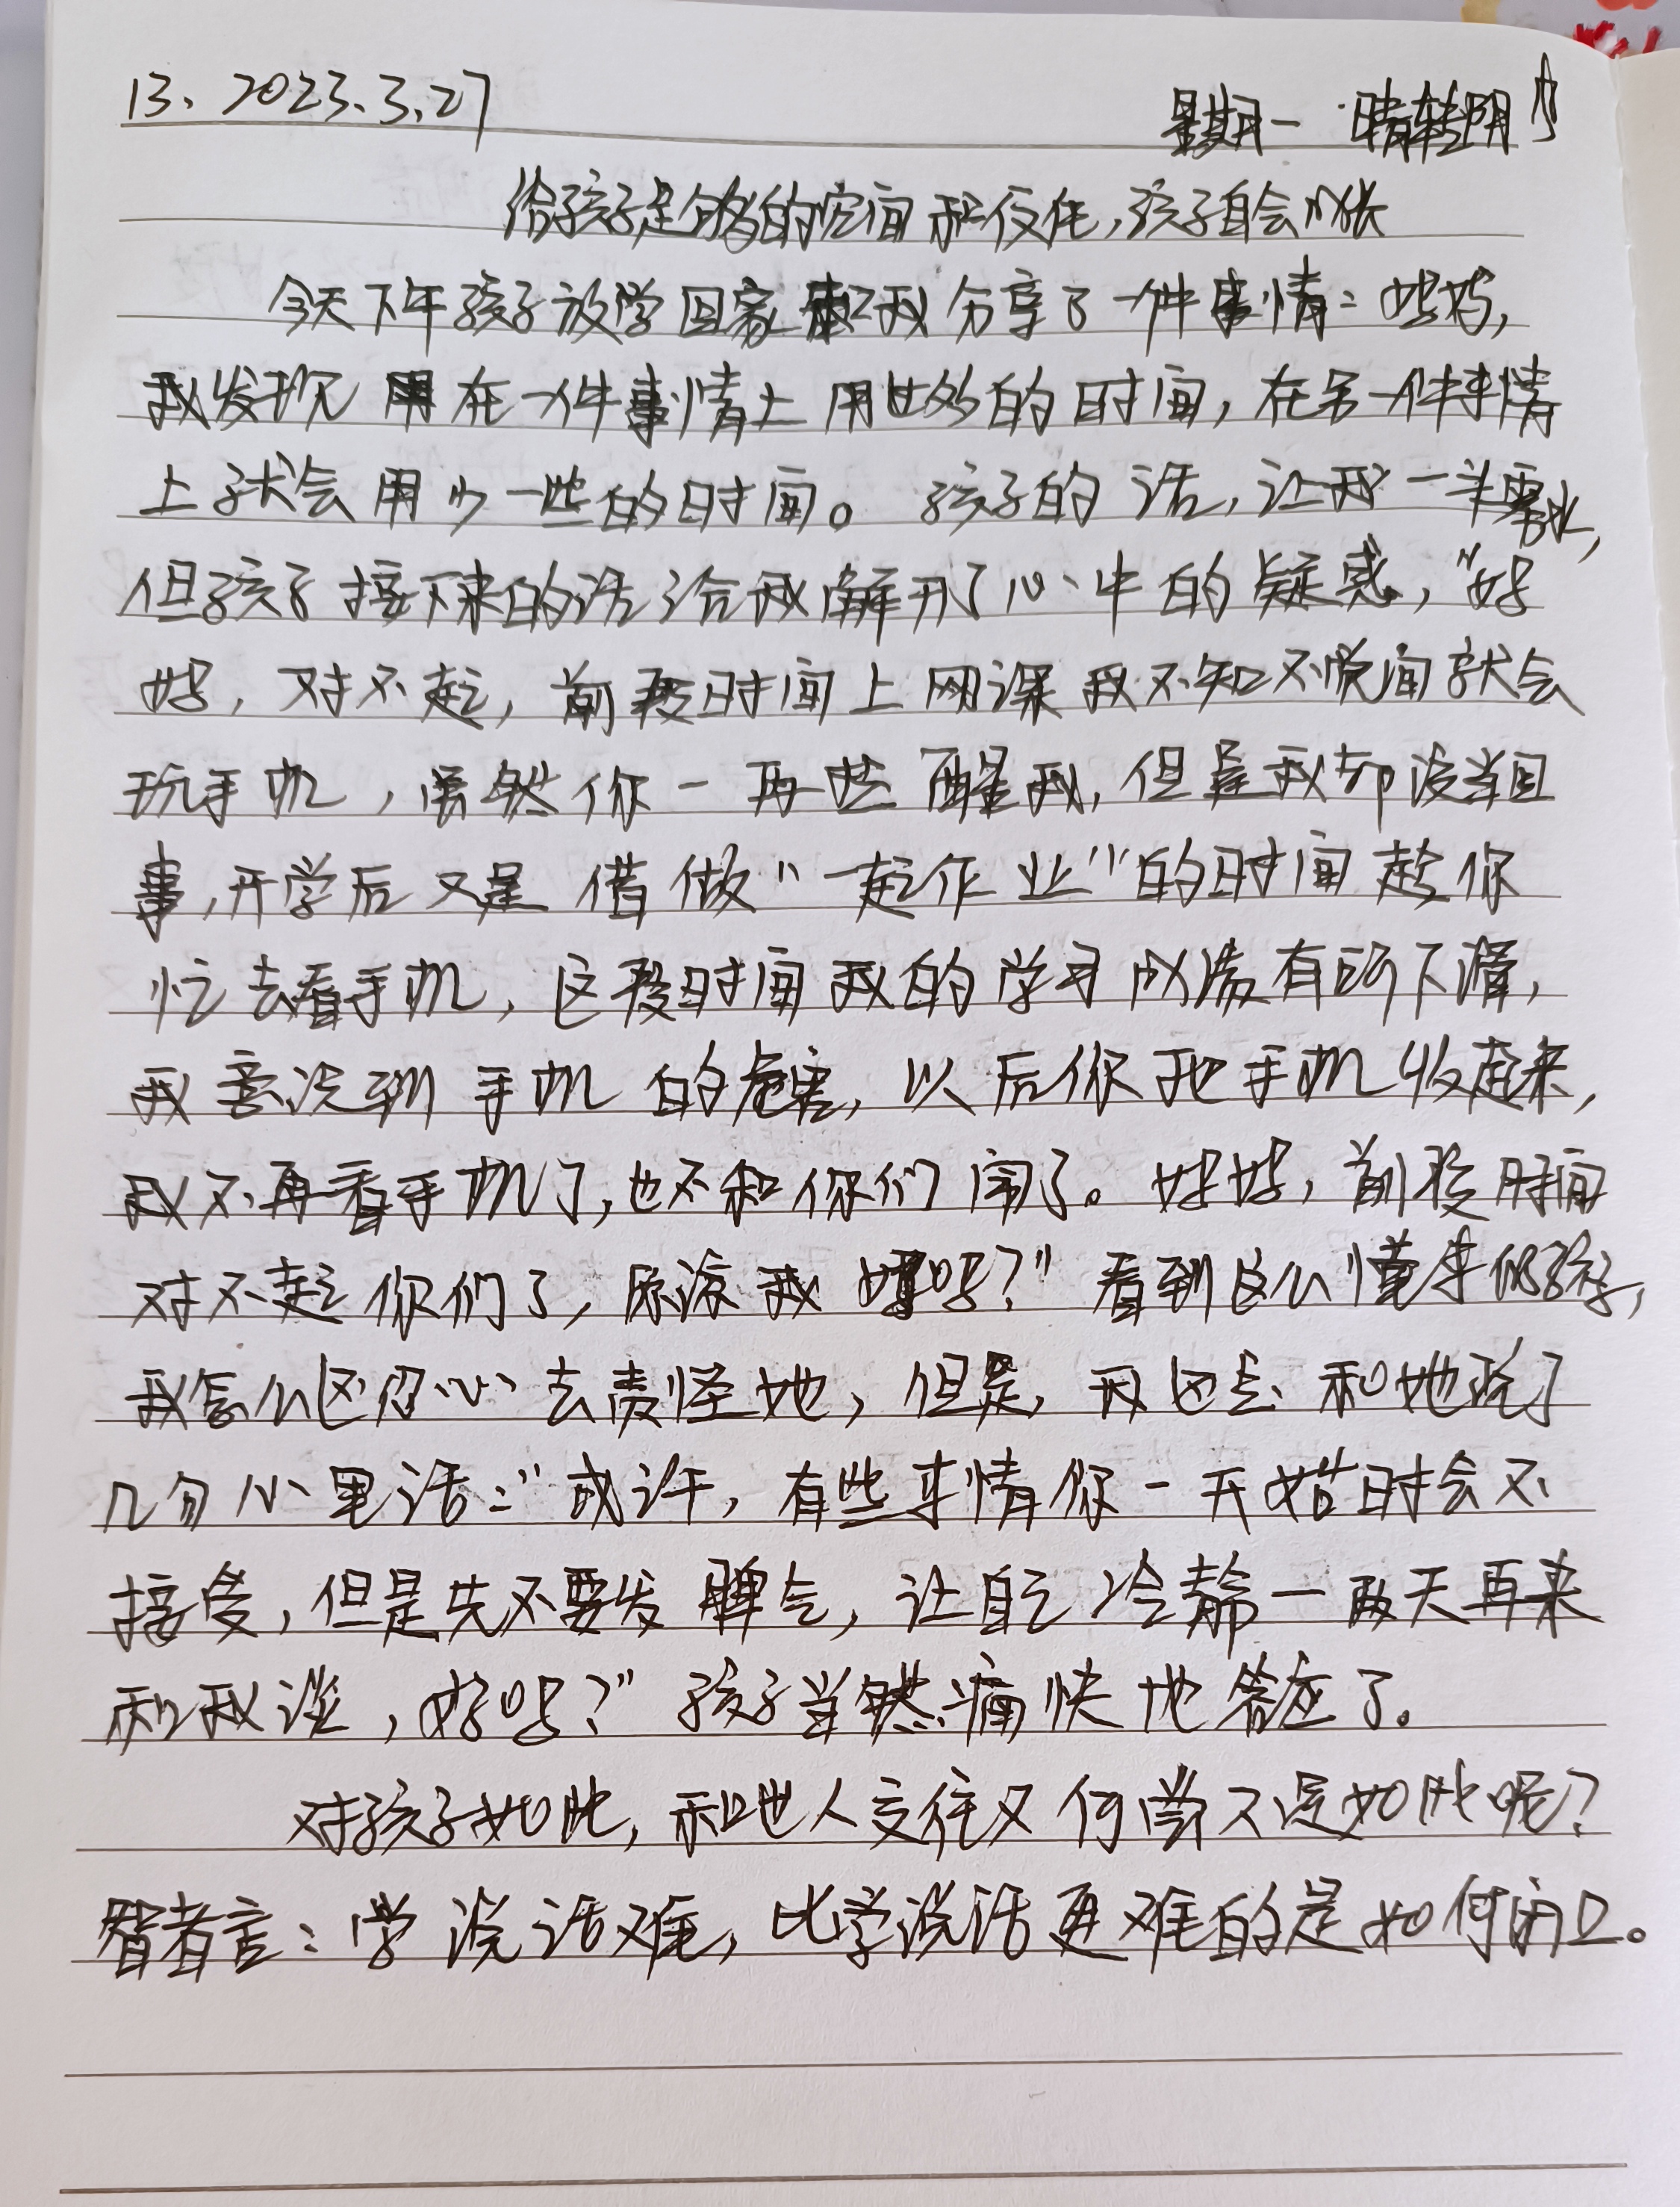 13、2023.3.27
星期一 晴转阴
给孩子足够的空间和信任，孩子自会成长
今天下午孩子放学回家和我分享了一件事情：妈妈，
我发现 用在一件事情上用些多的时间，在另一件事情
上就会用少一些的时间。孩子的话，让我一头雾水，
但孩子接下来的话给我解开了心中的疑惑，“妈
妈，对不起，前段时间上网课我不知不觉间就会
玩手机，虽然你一再提醒我，但是我却没当回
事，开学后又是借做“一起作业”的时间趁你
忙去看手机，这段时间我的学习成绩有所下滑，
我意识到手机的危害，以后你把手机收起来，
我不再看手机了，也不和你们闹了。妈妈，前段时间
对不起你们了，原谅我好吗？”看到这么懂事的孩子，
我怎么忍心去责怪她，但是，我还是和她说了
几句心里话：“或许，有些事情你一开始时会不
接受，但是先不要发脾气，让自己冷静一两天再来
和我谈，好吗？”孩子当然痛快地答应了。
对孩子如此，和他人交往又何尝不是如此呢？
智者言：学说话难，比学说话更难的是如何闭口。